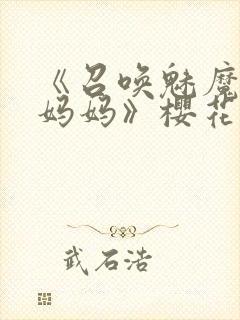 《召唤魅魔
妈妈》樱花
武石浩